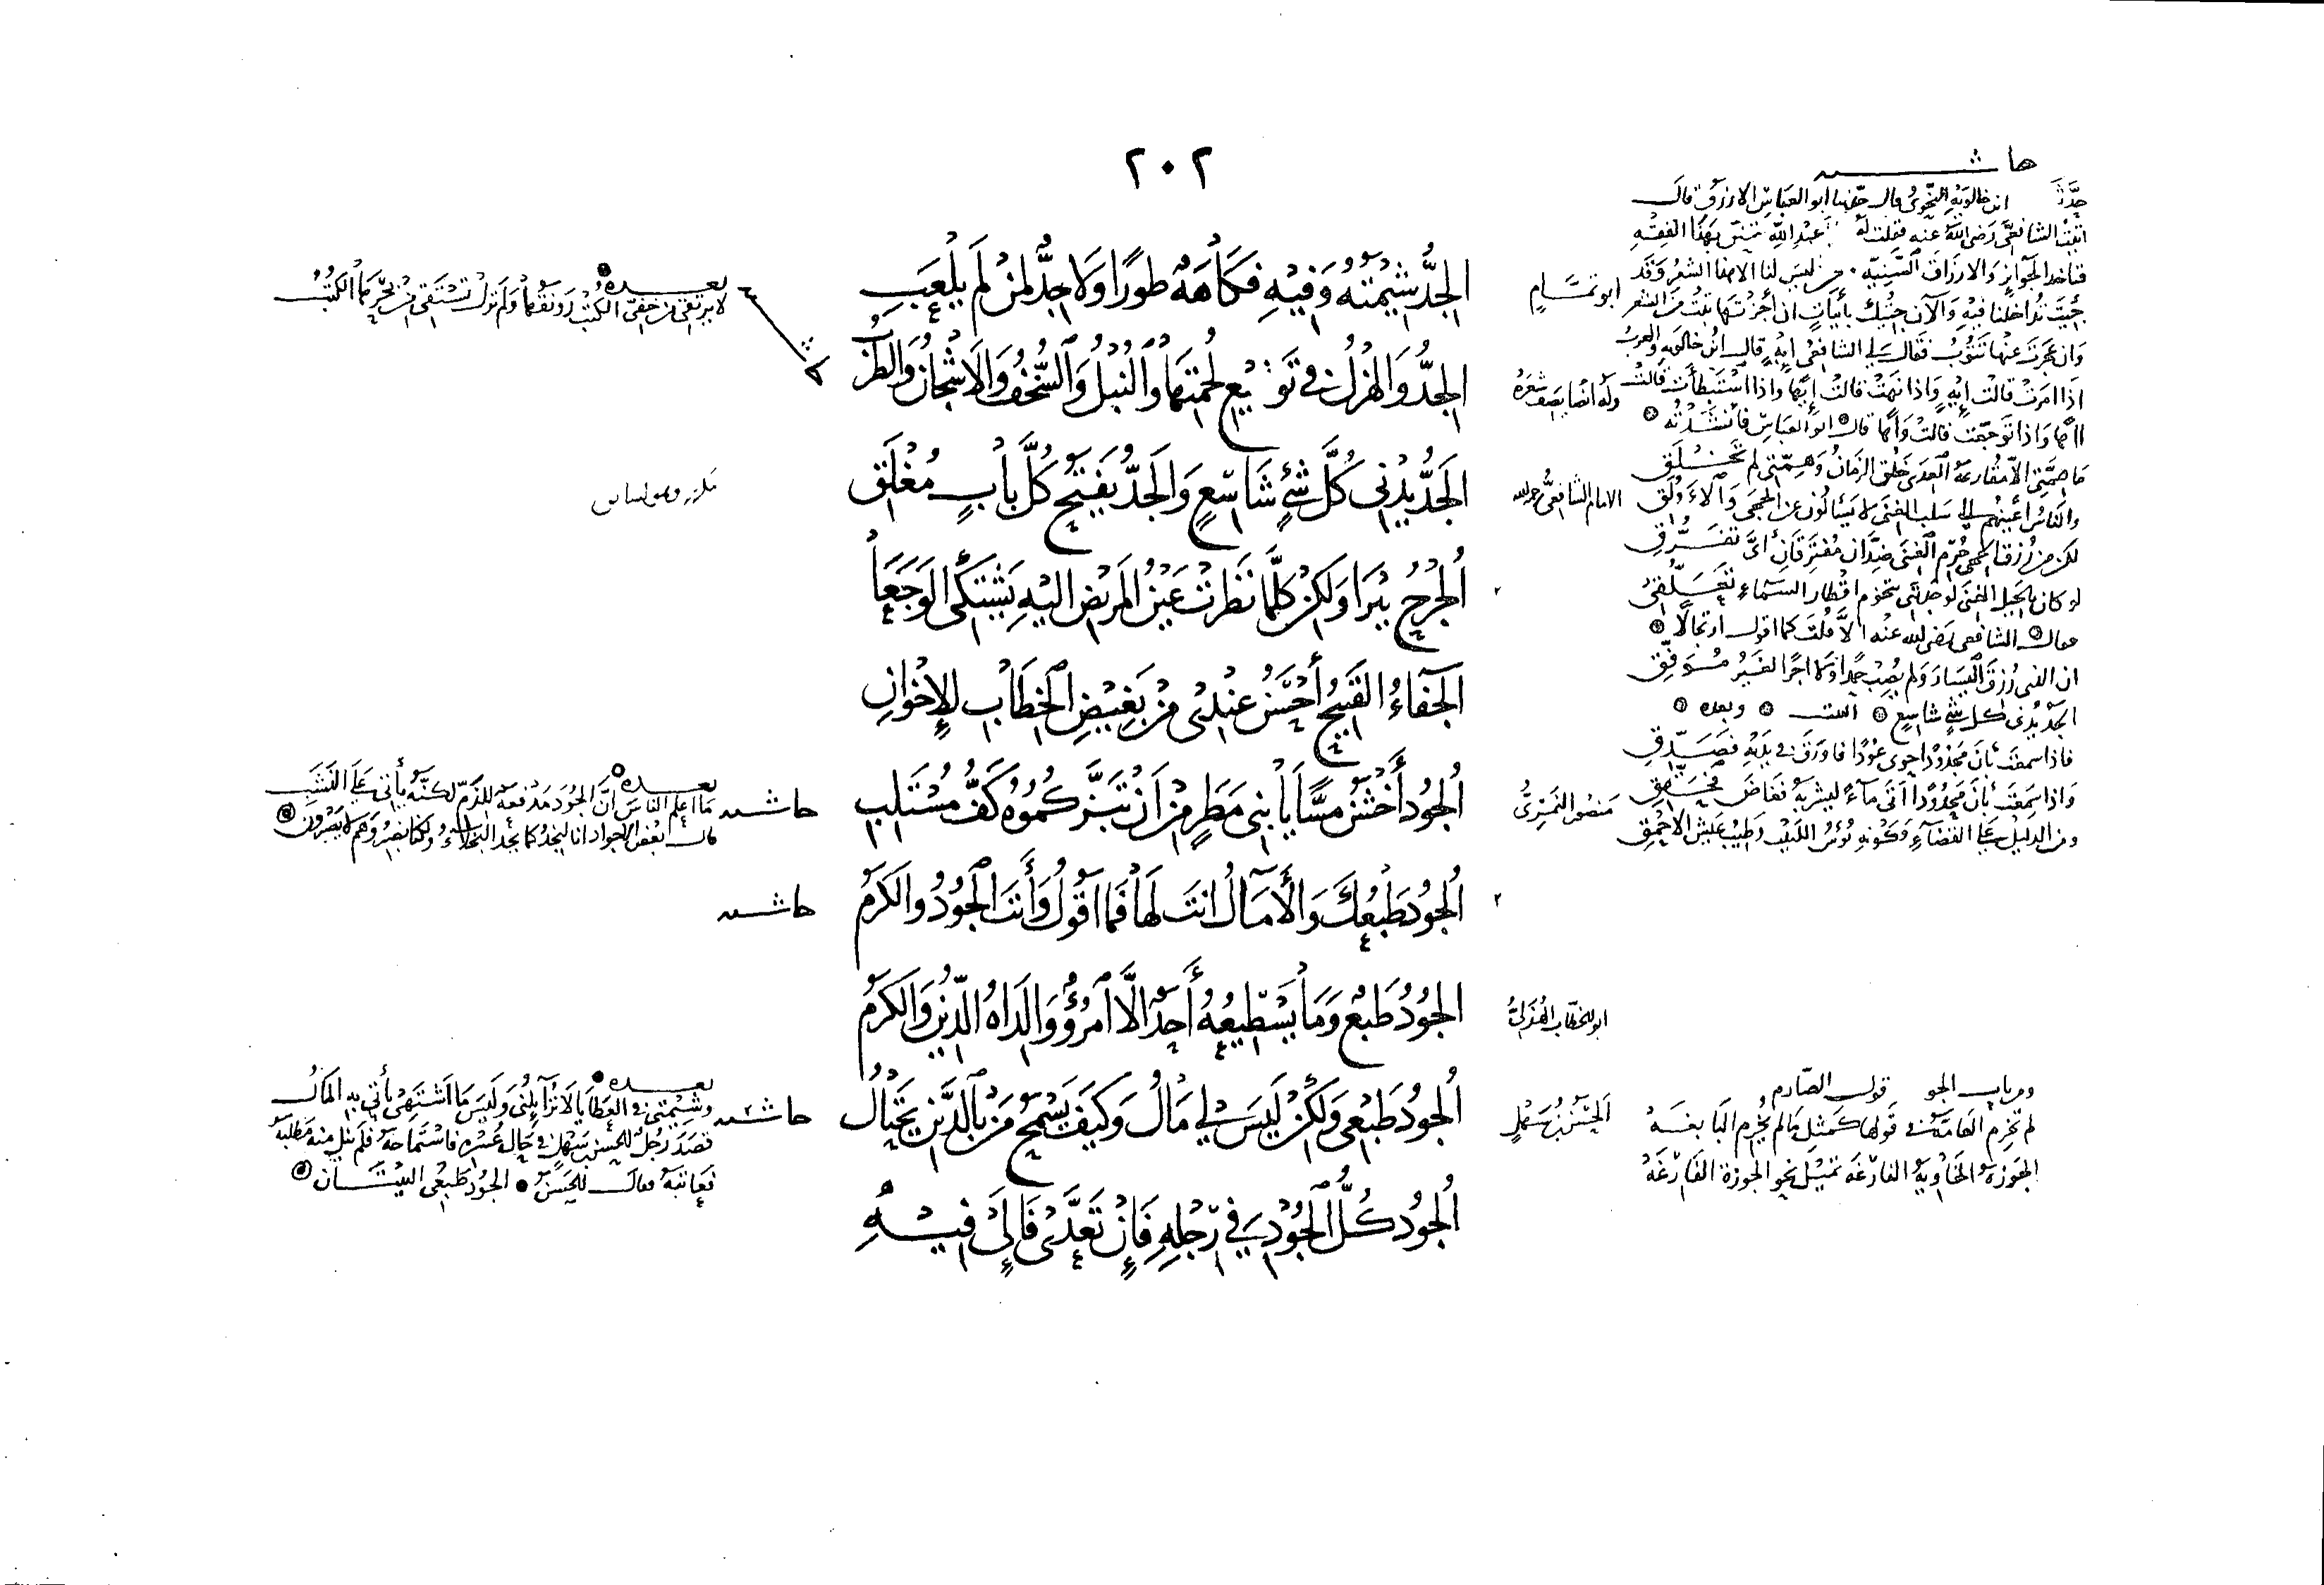 ٢٠٢
الجِدُّ شِيمَتُهُ وَفِيهِ فَكَاهَةٌ طَورًا وَلَا جِدٌّ لِمَنْ لَمْ يَلْعَبِ
الجِدُّ وَالهَزْلُ فِي تَوْشِيعِ لُحْمَتِهَا وَالنُّبْلُ وَالسُّخْفُ وَالأَشْجَانُ وَالطَّرَبُ
الجَدُّ يُدْنِي كُلَّ شَيْءٍ شَاسِعٍ وَالجَدُّ يَفْتَحُ كُلَّ بَابٍ مُغْلَقِ
الجُرْحُ يَبْرَا وَلَكِنْ كُلَّمَا نَظَرَتْ عَيْنُ المَرِيضِ إِلَيْهِ يَشْتَكِي الوَجَعَا
الجَفَاءُ القَبِيحُ أَحْسَنُ عِنْدِي مِنْ بَغِيضِ الخِطَابِ لِلإِخْوَانِ
الجُودُ أَخْشَنُ مَسًّا يَا بَنِي مَطَرٍ مِنْ أَنْ تَبُزَّكُمُوهُ كَفُّ مُسْتَلِبِ
الجُودُ طَبْعُكَ وَالآمَالُ أَنْتَ لَهَا فَمَا أَقُولُ وَأَنْتَ الجُودُ وَالكَرَمُ
الجُودُ طَبْعٌ وَمَا يَسْطِيعُهُ أَحَدٌ إِلَّا امْرُؤٌ وَالِدَاهُ الدِّينُ وَالكَرَمُ
الجُودُ طَبْعِي وَلَكِنْ لَيْسَ لِي مَالُ وَكَيْفَ يَسْمَحُ مَنْ بِالدَّيْنِ يَحْتَالُ
الجُودُ كُلُّ الجُودِ فِي رِجْلِهِ فَإِنْ تَعَدَّى فَإِلَى فِيهِ
هاشية
حدَّث ابن خالويه النحوي قال حدثنا ابو العباس الازرق قال
اتيت الشافعي رضي الله عنه فقلت له يا ابا عبد الله تتفق بهذا الفقه
فتاخذ الجوائز والارزاق السنية ونحن ليس لنا الا هذا الشعر وقد
جئت تداخلنا فيه والآن جئتك بأبيات ان اجزتها تبت من الشعر
وان عجزت عنها تتوب فقال لي الشافعي إيه قال ابن خالويه والعرب
اذا امرت قالت إيه واذا نهت قالت إيها واذا استبطأت قالت
واذا توجعت قالت واها قال ابو العباس فأنشدته
ما همتي الا مقارعة العدى خلق الزمان وهمتي لم تخلق
والناس أعينهم الى سلب الغنى لا يسألون عن الحجى والأولق
لكن من رزق الحجى حرم الغنى ضدان مفترقان أي تفرق
لو كان بالحيل الغنى لوجدتني بنجوم اقطار السماء تعلقي
فقال الشافعي رضي الله عنه الا قلت كما اقول ارتجالا
ان الذي رزق اليسار ولم يصب حمدا ولا اجرا لغير موفق
الجد يدني كل شيء شاسع البيت وبعده
فاذا سمعت بان مجدودا حوى عودا فاورق في يديه فصدق
واذا سمعت بان محدودا اتى ماء ليشربه فغاض فحقق
ومن الدليل على القضاء وكونه بؤس اللبيب وطيب عيش الاحمق
ابو تمام
وله ايضا يصف شعره
الامام الشافعي رحمه الله
منصور النمري
ابو الخطاب الهذلي
الحسن بن سهل
ومن باب الجو قول الصارم
لم تخرم العامة في قولها كمثل ما لم يخرم البابغه
الجوزة الخاوية الفارغه تميل نحو الجوزة الفارغه
بعده
لا يرتقي من حفي الكتب رونقها ولم تزل تستقي من بحرها الكتب
بعده
ما أعلم الناس أن الجود مدفعة للذم لكنه يأتي على النشب
قال بعض الاجواد انا لنجد كما يجد البخلاء ولكنا نصبر وهم لا يصبرون
حاشية
حاشية
بعده
وشيمتي في العطايا لا تزايلني وليس ما اشتهي يأتي به المال
قصد رجل للحسن بن سهل في حال عسره فاستماحه فلم ينل منه مطلبه
فعاتبه فقال الحسن الجود طبعي البيتان
حاشية